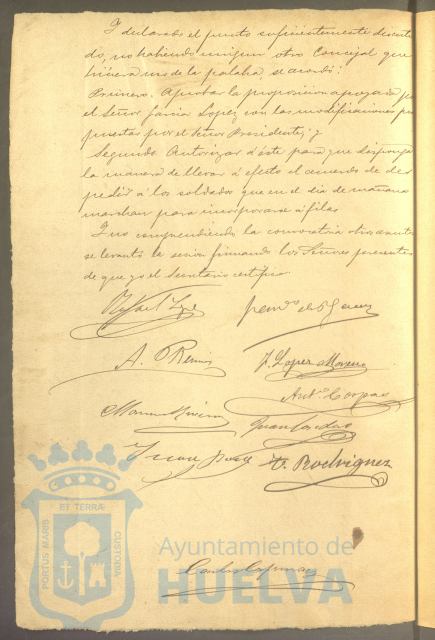 I declarado el punto suficientemente discuti-
do, no habiendo ningun otro Concejal que
hiciera uso de la palabra, se acordó:
Primero. Aprobar la proposicion apoyada por
el Señor Garcia Lopez con las modificaciones pro
puestas por el Señor Presidente; y
Segundo. Autorizar á éste para que disponga
la manera de llevar á efecto el acuerdo de des
pedir á los soldados que en el dia de mañana
marchan para incorporarse á filas
Y no comprendiendo la convocatoria otro asunto
se levantó la sesion firmando los Señores presentes
de que yo el Secretario certifico
A.
J. Lopez Moreno
Antº Corpas
T. Rodriguez
ET TERRÆ
PORTUS MARIS
CUSTODIA
Ayuntamiento de
HUELVA